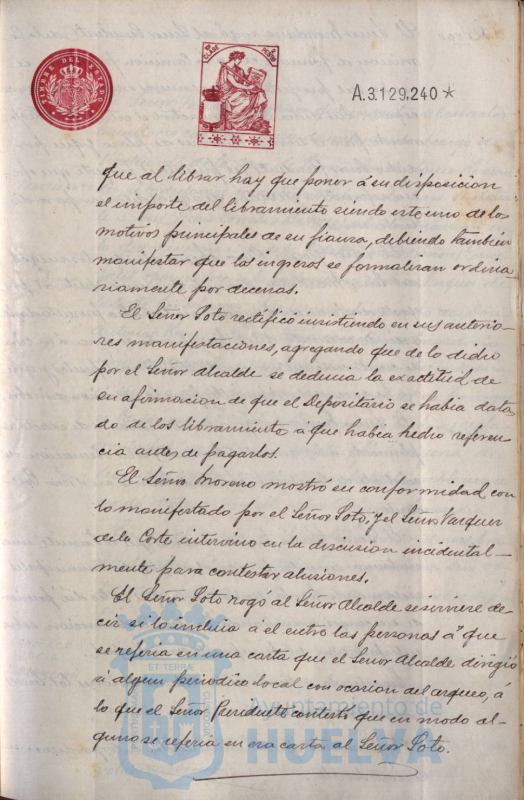 TIMBRE DEL ESTADO
A.3.129.240*
que al librar hay que poner á su disposicion
el importe del libramiento siendo este uno de los
motivos principales de su fianza, debiendo tambien
manifestar que los ingresos se formalizan ordina-
riamente por decenas.
El Señor Soto rectificó insistiendo en sus anterio-
res manifestaciones, agregando que de lo dicho
por el Señor Alcalde se deducia la exactitud de
su afirmacion de que el Depositario se habia data-
do de los libramientos á que habia hecho referen-
cia antes de pagarlos.
El Señor Moreno mostró su conformidad con
lo manifestado por el Señor Soto, y el Señor Vazquez
de la Corte intervino en la discusion incidental-
mente para contestar alusiones.
El Señor Soto rogó al Señor Alcalde se sirviese de-
cir si lo incluia á el entre las personas á que
se referia en una carta que el Señor Alcalde dirigió
á algun periodico local con ocasion del arqueo, á
lo que el Señor Presidente contestó que en modo al-
guno se referia en esa carta al Señor Soto.
ET TERRÆ
Ayuntamiento de
HUELVA